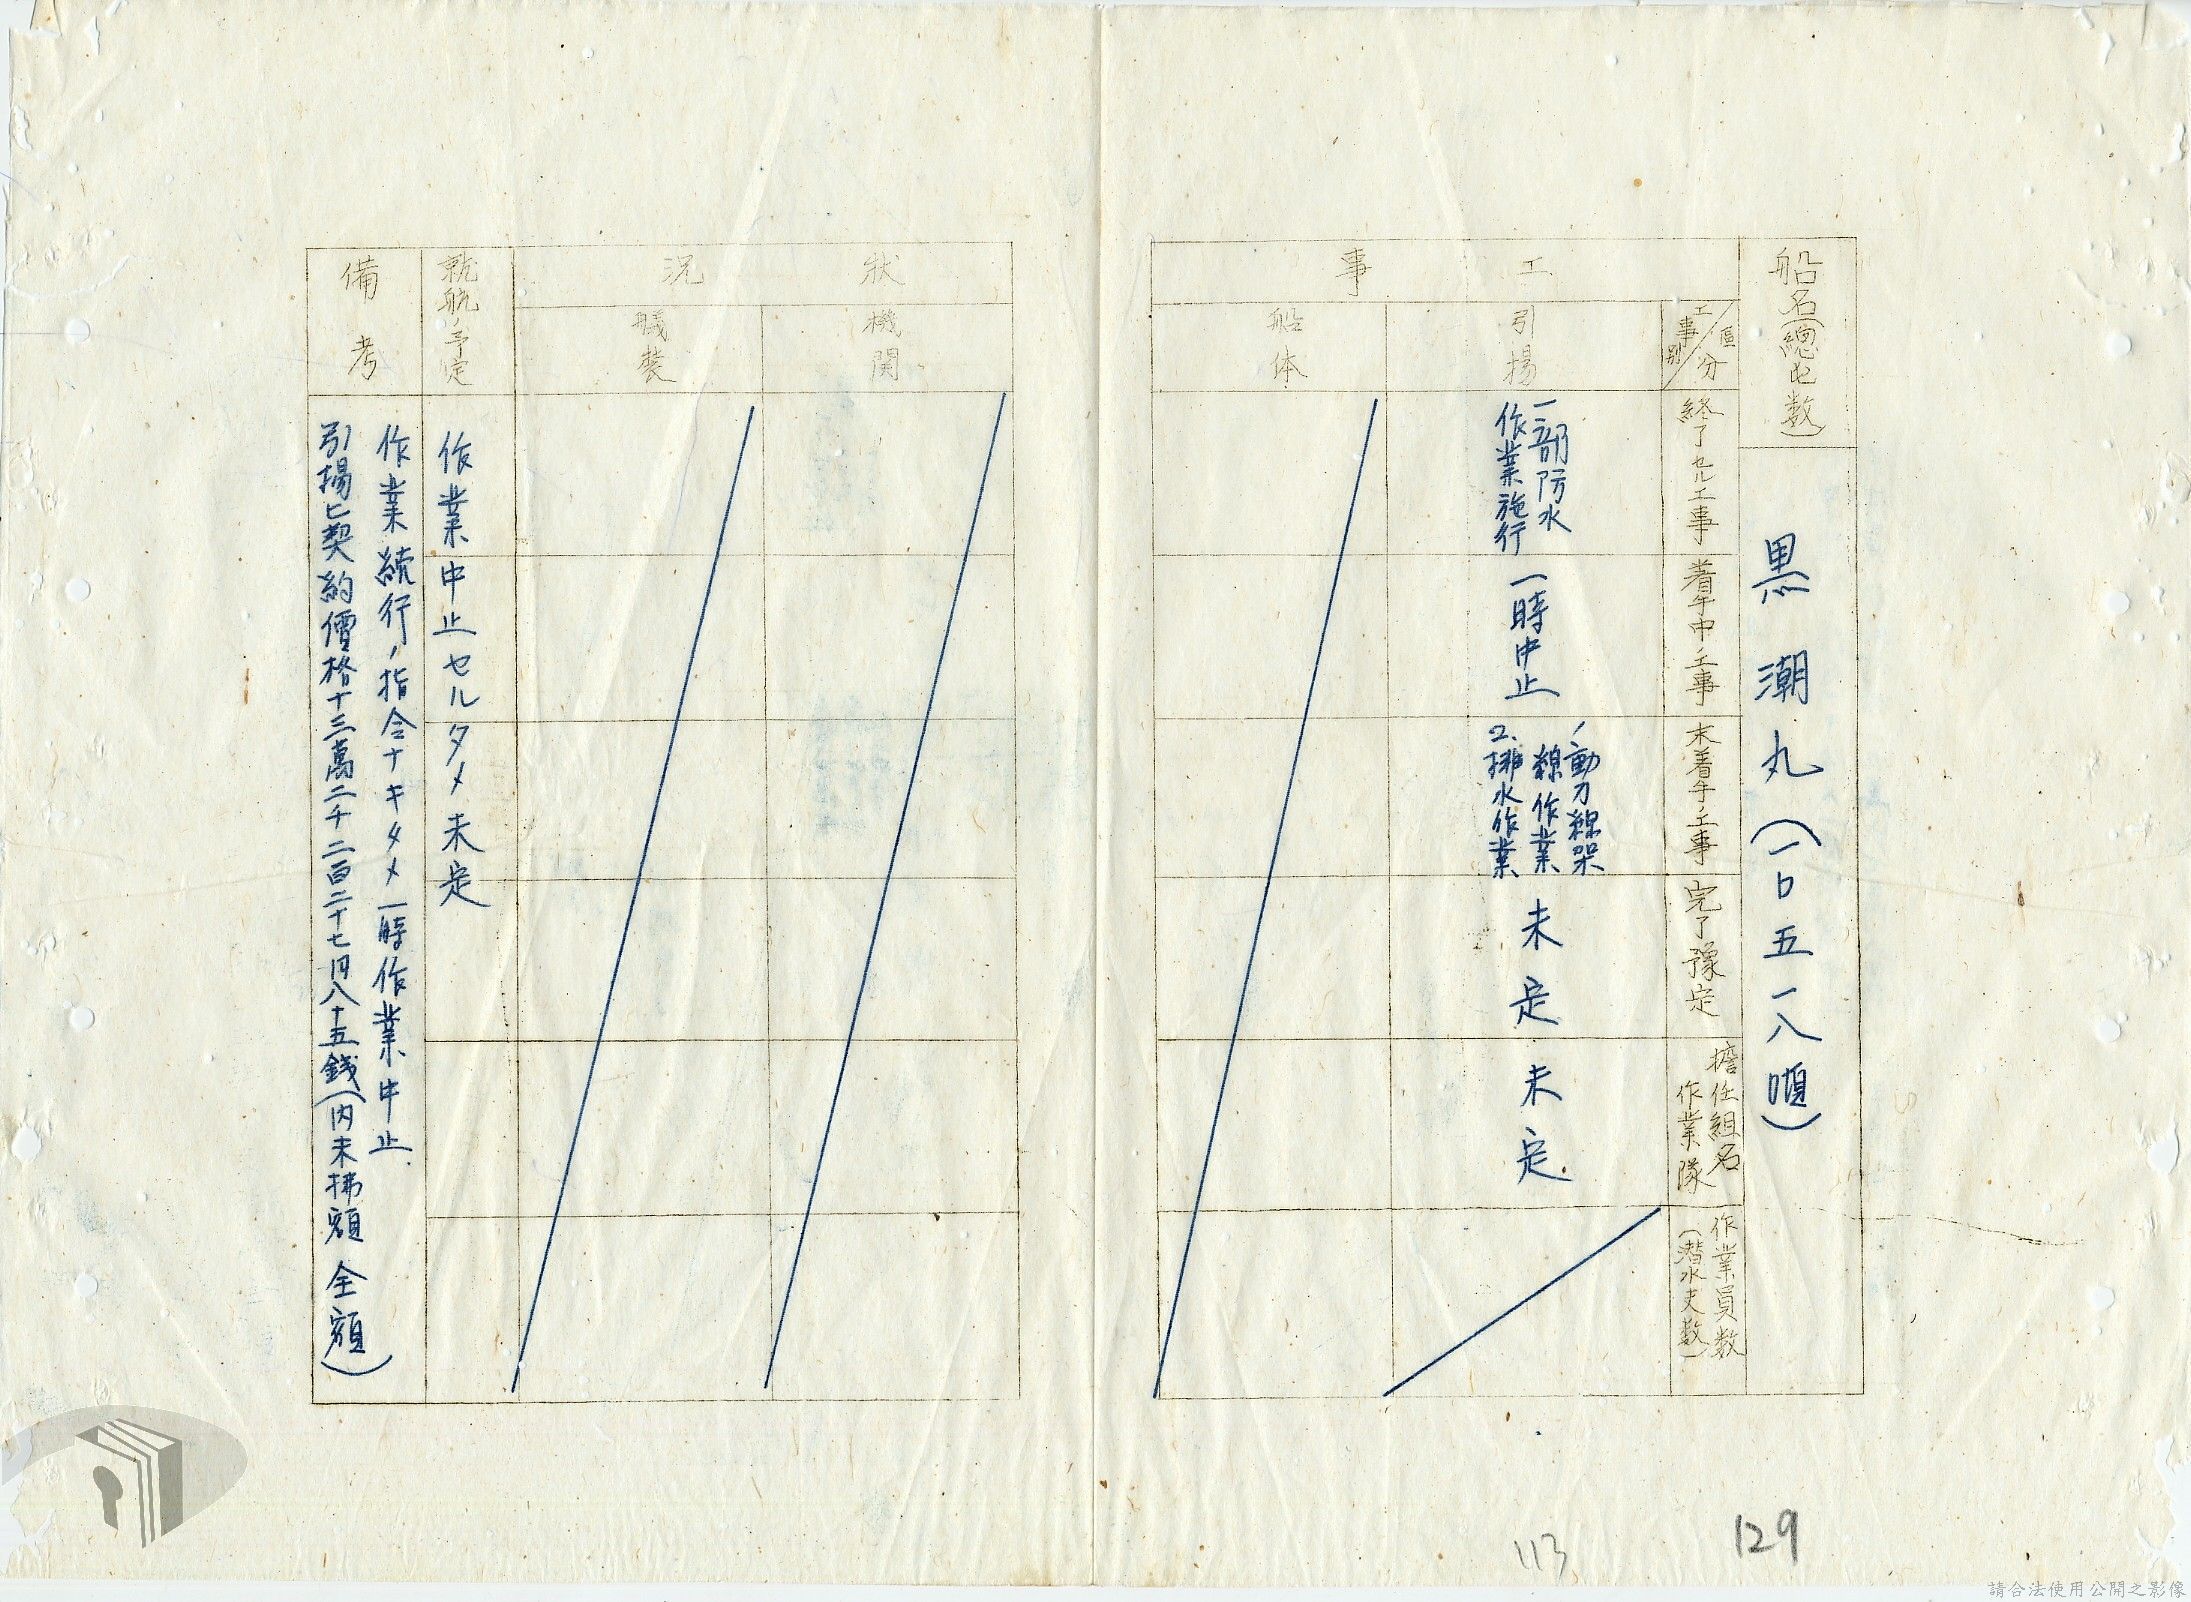 船名(總屯数)
黒潮丸(一〇五一八噸)
工事
工事別
區分
終了セル工事
着手中ノ工事
未着手ノ工事
完了豫定
擔任組名
作業隊
作業員数
(潜水夫数)
引揚
一部防水
作業施行
一時中止
1、動力線架
線作業
2、排水作業
未定
未定.
船体
狀況
機関
艤装
就航ノ予定
作業中止セルタメ未定
備考
作業続行ノ指令ナキタメ一時作業中止.
引揚ヒ契約價格十三萬二千二百二十七円八十五銭(内未拂額 全額)
113
129
請合法使用公開之影像